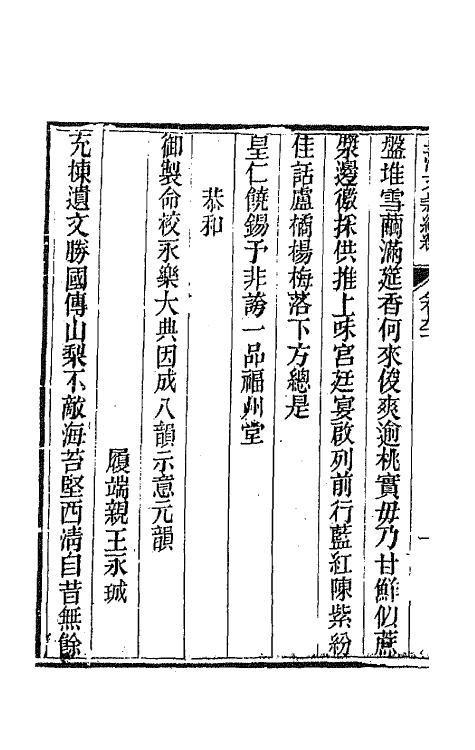 盤堆雪繭滿筵香何來俊爽逾桃實毋乃甘鮮似蔗
漿邊徼採供推上味宮廷宴啟列前行藍紅陳紫紛
佳話盧橘楊梅落下方總是
皇仁饒錫予非誇一品福州堂
恭和
御製命校永樂大典因成八韻示意元韻
履端親王永珹
充棟遺文勝國傳山梨不敵海苔堅西清自昔無餘